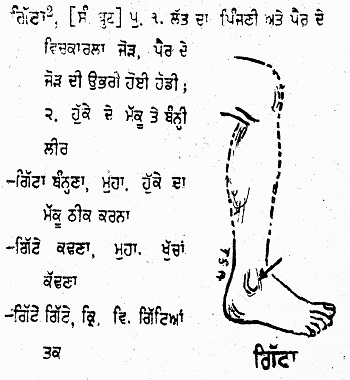 ਗਿੱਟਾ², [ਸੰ ਘੁਟ] ਪੁ. ੧. ਲੱਤ ਦਾ ਪਿੰਜਣੀ ਅਤੇ ਪੈਰ ਦੇ
ਵਿਚਕਾਰਲਾ ਜੋੜ, ਪੈਰ ਦੇ
ਜੋੜ ਦੀ ਉਭਰੀ ਹੋਈ ਹੱਡੀ;
੨. ਹੁੱਕੇ ਦੇ ਮੱਕੂ ਤੇ ਬੰਨ੍ਹੀ
ਲੀਰ
–ਗਿੱਟਾ ਬੰਨ੍ਹਣਾ, ਮੁਹਾ. ਹੁੱਕੇ ਦਾ
ਮੱਕੂ ਠੀਕ ਕਰਨਾ
–ਗਿੱਟੇ ਕਢਣਾ, ਮੁਹਾ. ਖੁੱਚਾਂ
ਕੱਢਣਾ
–ਗਿੱਟੇ ਗਿੱਟੇ, ਕ੍ਰਿ. ਵਿ. ਗਿੱਟਿਆਂ
ਤਕ
ਗਿੱਟਾ